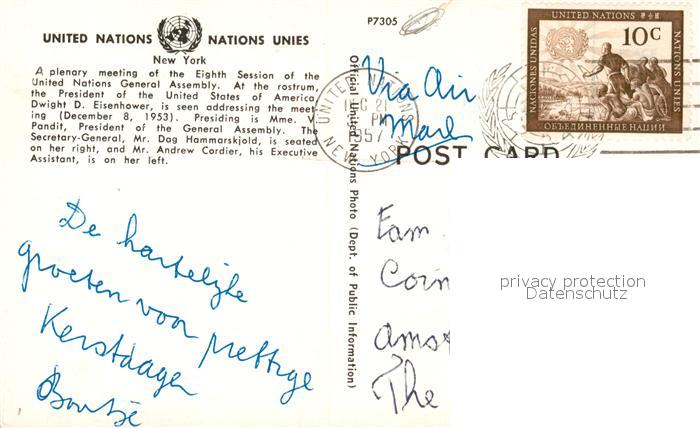 P7305
UNITED NATIONS NATIONS UNIES
New York
A plenary meeting of the Eighth Session of the
United Nations General Assembly. At the rostrum,
the President of the United States of America,
Dwight D. Eisenhower, is seen addressing the meet-
ing (December 8, 1953). Presiding is Mme. V.
Pandit, President of the General Assembly. The
Secretary-General, Mr. Dag Hammarskjold, is seated
on her right, and Mr. Andrew Cordier, his Executive
Assistant, is on her left.
De hartelijke
groeten voor prettige
Kerstdagen
Bontje
Official United Nations Photo (Dept. of Public Information)
UNITED NATIONS
DEC 21
PM
1957
NEW YORK
Via Air
Mail
POST CARD
UNITED NATIONS
10c
NACIONES UNIDAS
NATIONS UNIES
ОБЪЕДИНЕННЫЕ НАЦИИ
Fam
Coin
Amst
The
privacy protection
Datenschutz